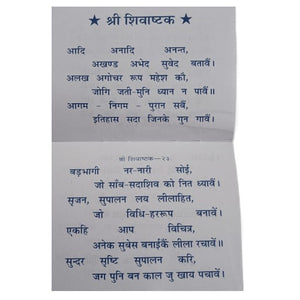 ★ श्री शिवाष्टक ★
आदि अनादि अनन्त,
अखण्ड अभेद सुवेद बतावैं।
अलख अगोचर रूप महेश कौ,
जोगि जती-मुनि ध्यान न पावैं॥
आगम - निगम - पुरान सबैं,
इतिहास सदा जिनके गुन गावैं।
श्री शिवाष्टक—२३
बड़भागी नर-नारी सोई,
जो साँब-सदाशिव कों नित ध्यावैं॥
सृजन, सुपालन लय लीलाहित,
जो विधि-हररूप बनावें।
एकहि आप विचित्र,
अनेक सुबेस बनाईकैं लीला रचावैं॥
सुन्दर सृष्टि सुपालन करि,
जग पुनि बन काल जु खाय पचावैं।